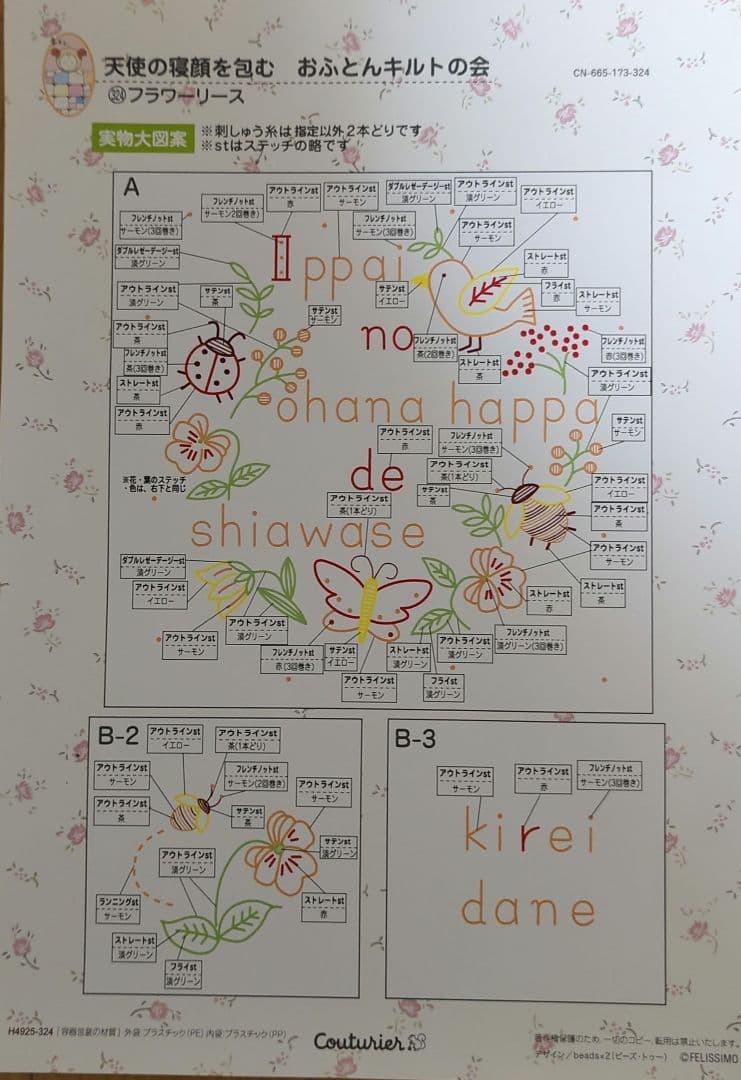 天使の寝顔を包む　おふとんキルトの会
CN-665-173-324
324フラワーリース
実物大図案
※刺しゅう糸は指定以外2本どりです
※stはステッチの略です
A
アウトラインst
赤
アウトラインst
サーモン
ダブルレゼーデージーst
濃グリーン
アウトラインst
濃グリーン
アウトラインst
イエロー
フレンチノットst
サーモン2回巻き)
フレンチノットst
サーモン(3回巻き)
フレンチノットst
サーモン(3回巻き)
アウトラインst
サーモン
ダブルレゼーデージーst
濃グリーン
ストレートst
赤
Ippai
アウトラインst
濃グリーン
サテンst
茶
サテンst
イエロー
フライst
赤
ストレートst
サーモン
サテンst
サーモン
アウトラインst
茶
no
フレンチノットst
茶(2回巻き)
フレンチノットst
赤(3回巻き)
フレンチノットst
茶(3回巻き)
ストレートst
茶
ストレートst
茶
アウトラインst
濃グリーン
アウトラインst
赤
ohana happa
サテンst
サーモン
アウトラインst
赤
フレンチノットst
サーモン(3回巻き)
de
アウトラインst
茶(1本どり)
※花・葉のステッチ
・色は、右下と同じ
アウトラインst
茶(1本どり)
サテンst
茶
アウトラインst
イエロー
アウトラインst
茶
shiawase
アウトラインst
サーモン
ダブルレゼーデージーst
濃グリーン
アウトラインst
イエロー
ストレートst
茶
ストレートst
赤
アウトラインst
サーモン
アウトラインst
濃グリーン
フレンチノットst
赤(3回巻き)
サテンst
イエロー
ストレートst
濃グリーン
アウトラインst
濃グリーン
フレンチノットst
濃グリーン(3回巻き)
アウトラインst
サーモン
フライst
濃グリーン
B-2
アウトラインst
イエロー
アウトラインst
茶(1本どり)
アウトラインst
サーモン
フレンチノットst
サーモン(2回巻き)
アウトラインst
サーモン
アウトラインst
茶
サテンst
茶
サテンst
濃グリーン
アウトラインst
濃グリーン
ランニングst
サーモン
ストレートst
赤
ストレートst
濃グリーン
フライst
濃グリーン
B-3
アウトラインst
サーモン
アウトラインst
赤
フレンチノットst
サーモン(3回巻き)
kirei
dane
H4925-324 [容器包装の材質] 外袋:プラスチック(PE) 内袋:プラスチック(PP)
Couturier
著作権保護のため、一切のコピー、転用は禁止いたします。
デザイン/beads×2(ビーズ・トゥー) ©FELISSIMO